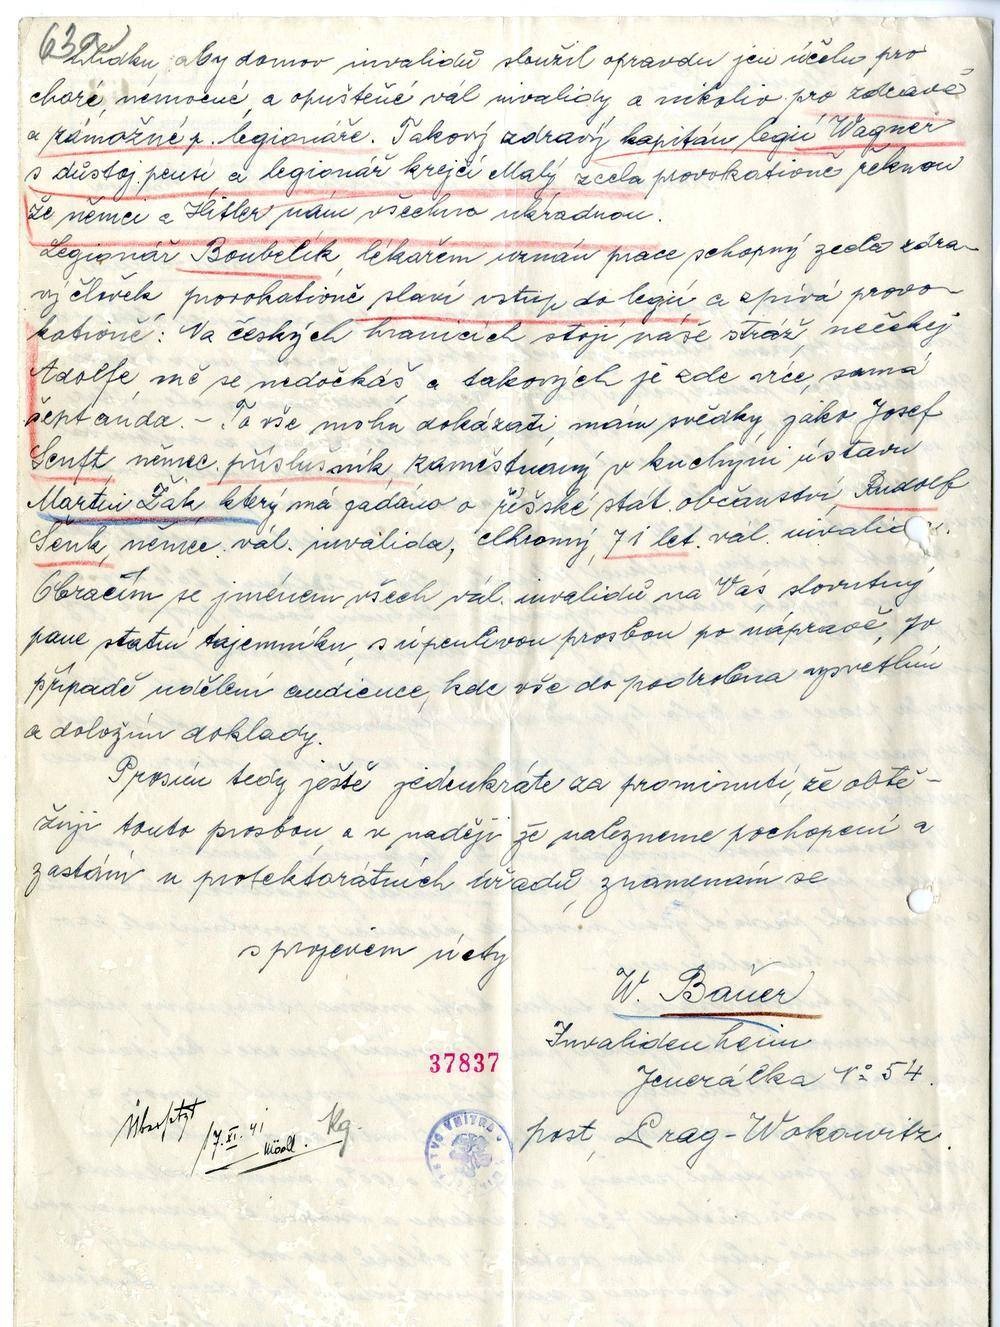 63a
aby domov invalidů sloužil opravdu jen účelu pro
choré, nemocné a opuštěné vál invalidy a nikoliv pro zdravé
a zámožné p. legionáře. Takový zdravý kapitán legií Wagner
s důstoj. pensí a legionář krejčí Malý zcela provokatičně řeknou
že němci a Hitler nám všechno ukradnou.
Legionář Boubelík, lékařem uznán práce schopný zcela zdra-
vý člověk provokatičně slaví vstup do legií a zpívá provo-
katičně: Na českých hranicích stojí naše stráž, nečekej
Adolfe nic se nedočkáš a takových je zde více, samá
šeptanda. - To vše mohu dokázati, mám svědky jako Josef
Senft němec. příslušník, zaměstnaný v kuchyni ústavu
Martin Žák který má zadáno o říšské stát. občanství, Rudolf
Šenk, němec. vál. invalida, chromý, 71 let. vál. invalida.
Obracím se jménem všech vál. invalidů na Vás slovutný
pane státní tajemníku, s úpenlivou prosbou po nápravě, po
případě udělení audience, kde vše do podrobna vysvětlím
a doložím doklady.
Prosím tedy ještě jedenkráte za prominutí, že obtě-
žuji touto prosbou a v naději že nalezneme pochopení a
zastání u protektorátních úřadů, znamenám se
s projevem úcty
W. Bauer
Invalidenheim
Jenerálka No 54.
post, Prag-Wokowitz
37837
Übersetzt
17. XI. 41
Kg.
VNITRA